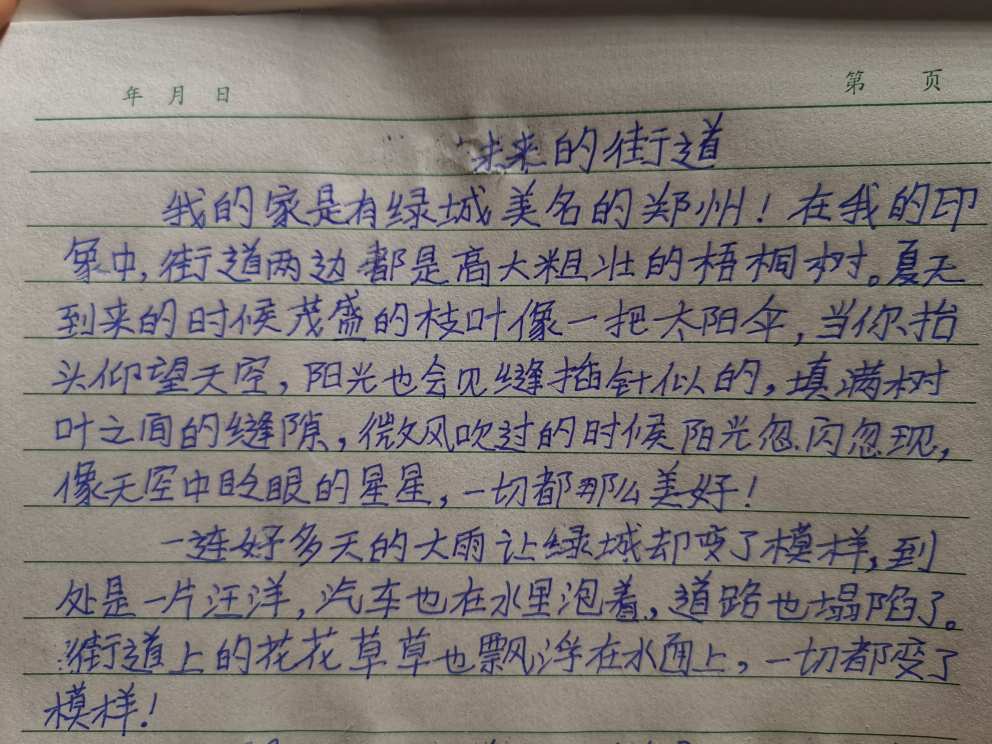 年 月 日
第 页
未来的街道
我的家是有绿城美名的郑州！在我的印
象中，街道两边都是高大粗壮的梧桐树。夏天
到来的时候茂盛的枝叶像一把太阳伞，当你抬
头仰望天空，阳光也会见缝插针似的，填满树
叶之间的缝隙，微风吹过的时候阳光忽闪忽现，
像天空中眨眼的星星，一切都那么美好！
一连好多天的大雨让绿城却变了模样，到
处是一片汪洋，汽车也在水里泡着，道路也塌陷了。
街道上的花花草草也飘浮在水面上，一切都变了
模样！